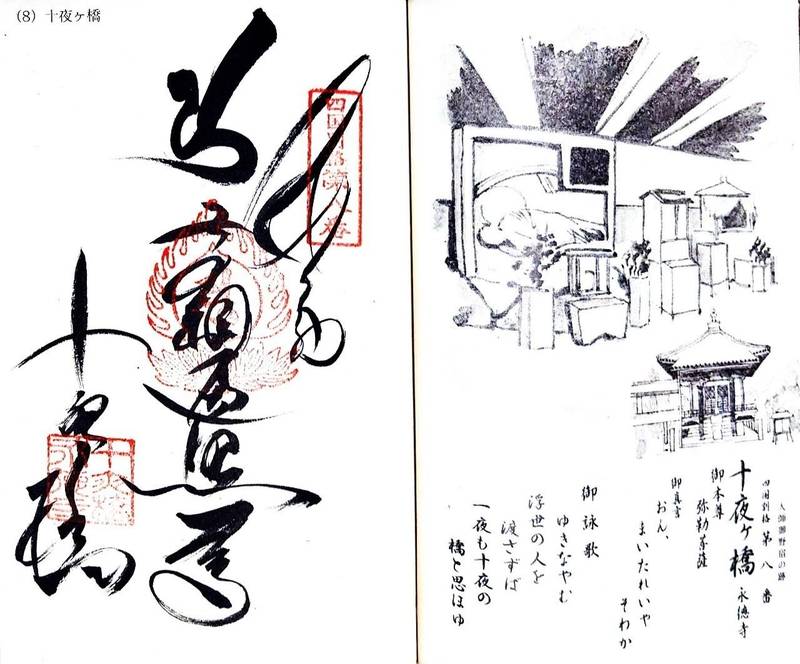 (8) 十夜ヶ橋
四国別格第八番
十夜橋
大師御野宿の跡
四国別格 第八番
十夜ヶ橋 永徳寺
御本尊 弥勒菩薩
御真言
おん、
まいたれいや
そわか
御詠歌
ゆきなやむ
浮世の人を
渡さずば
一夜も十夜の
橋と思ほゆ